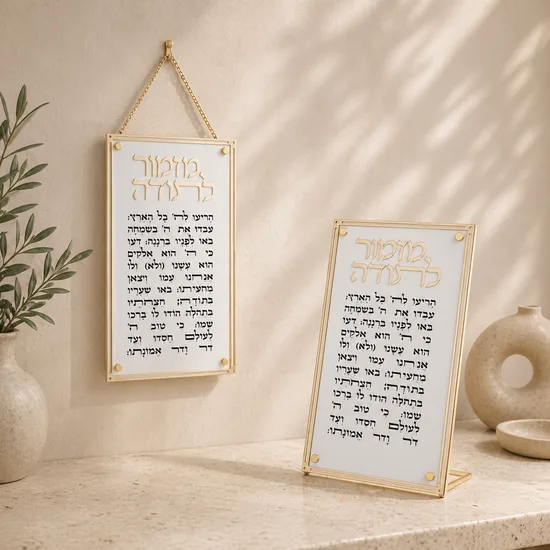 מזמור
לתודה
הריעו לה' כל הארץ:
עבדו את ה' בשמחה
באו לפניו ברננה: דעו
כי ה' הוא אלקים
הוא עשנו (ולא) ולו
אנחנו עמו וצאן
מרעיתו: באו שעריו
בתודה; חצרתיו
בתהלה הודו לו ברכו
שמו: כי טוב ה'
לעולם חסדו ועד
דר ודר אמונתו:
מזמור
לתודה
הריעו לה' כל הארץ:
עבדו את ה' בשמחה
באו לפניו ברננה: דעו
כי ה' הוא אלקים
הוא עשנו (ולא) ולו
אנחנו עמו וצאן
מרעיתו: באו שעריו
בתודה; חצרתיו
בתהלה הודו לו ברכו
שמו: כי טוב ה'
לעולם חסדו ועד
דר ודר אמונתו: